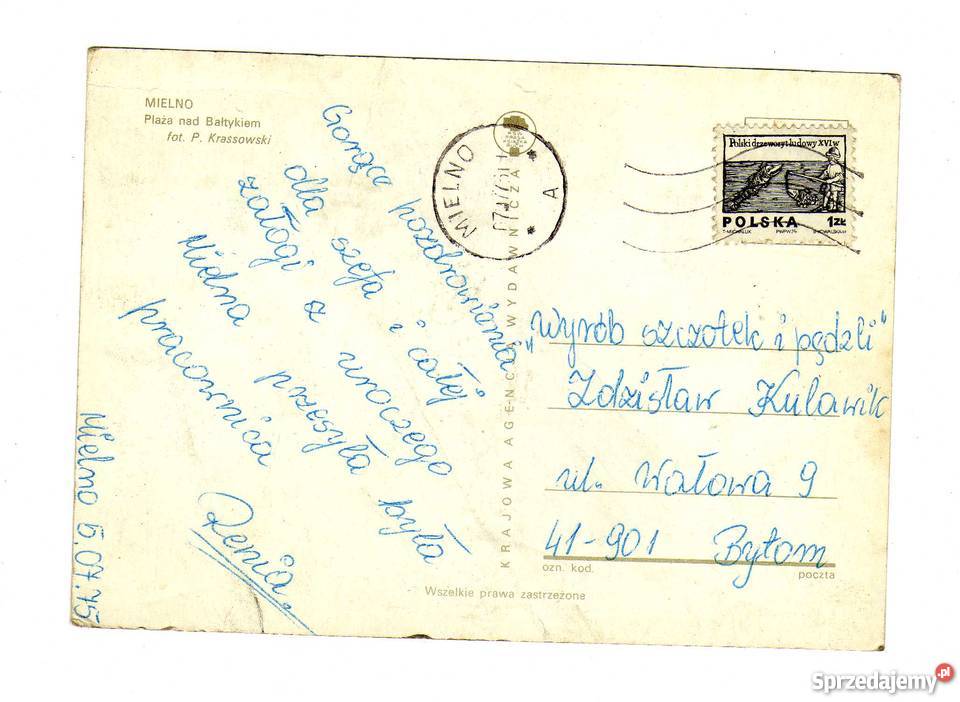 MIELNO
Plaża nad Bałtykiem
fot. P. Krassowski
Gorące pozdrowienia
dla szefa i całej
załogi z uroczego
Mielna przesyła była
pracownica
Renia.
Mielno 6.07.75
MIELNO
A
KRAJOWA AGENCJA WYDAWNICZA
Polski drzeworyt ludowy XVI w
POLSKA 1 ZŁ
T. MICHALUK PWPW. 74
„Wyrób szczotek i pędzli"
Zdzisław Kulawik
ul. Wałowa 9
41-901 Bytom
ozn. kod. poczta
Wszelkie prawa zastrzeżone
Sprzedajemy.pl